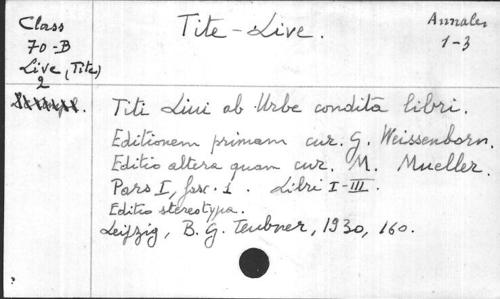 Class
70-B
Live, (Tite)
2
Tite-Live.
Annales
1-3
Titi Livi ab Urbe condita libri.
Editionem primam cur. G. Weissenborn.
Editio altera quam cur. M. Mueller.
Pars I, fasc. 1. Libri I-III.
Editio stereotypa.
Leipzig, B. G. Teubner, 1930, 160.